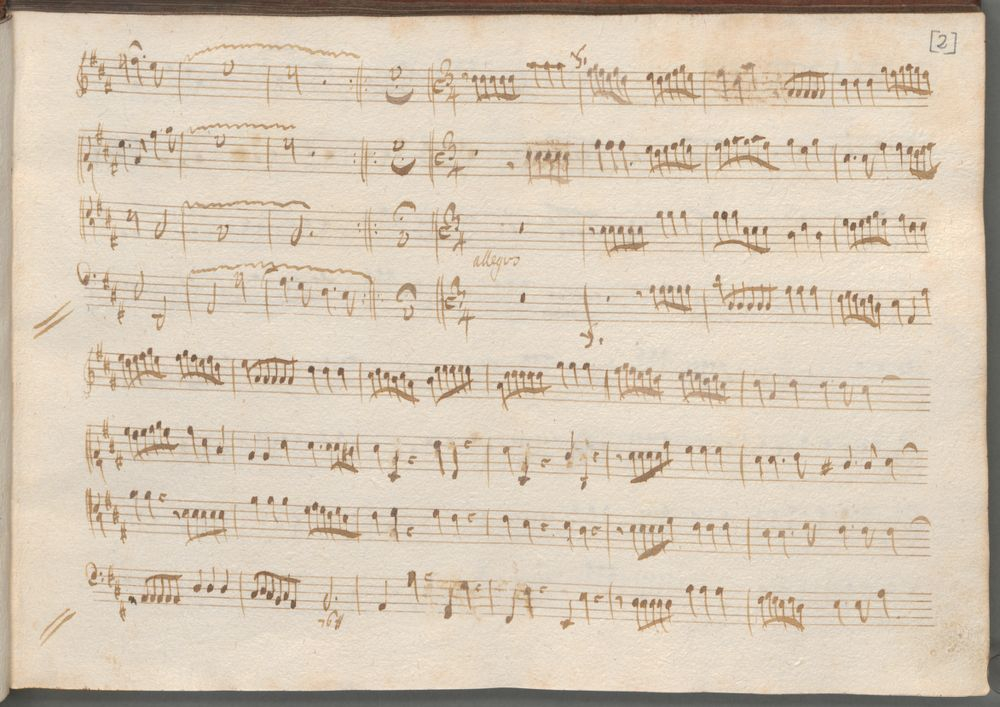 [2]
allegro